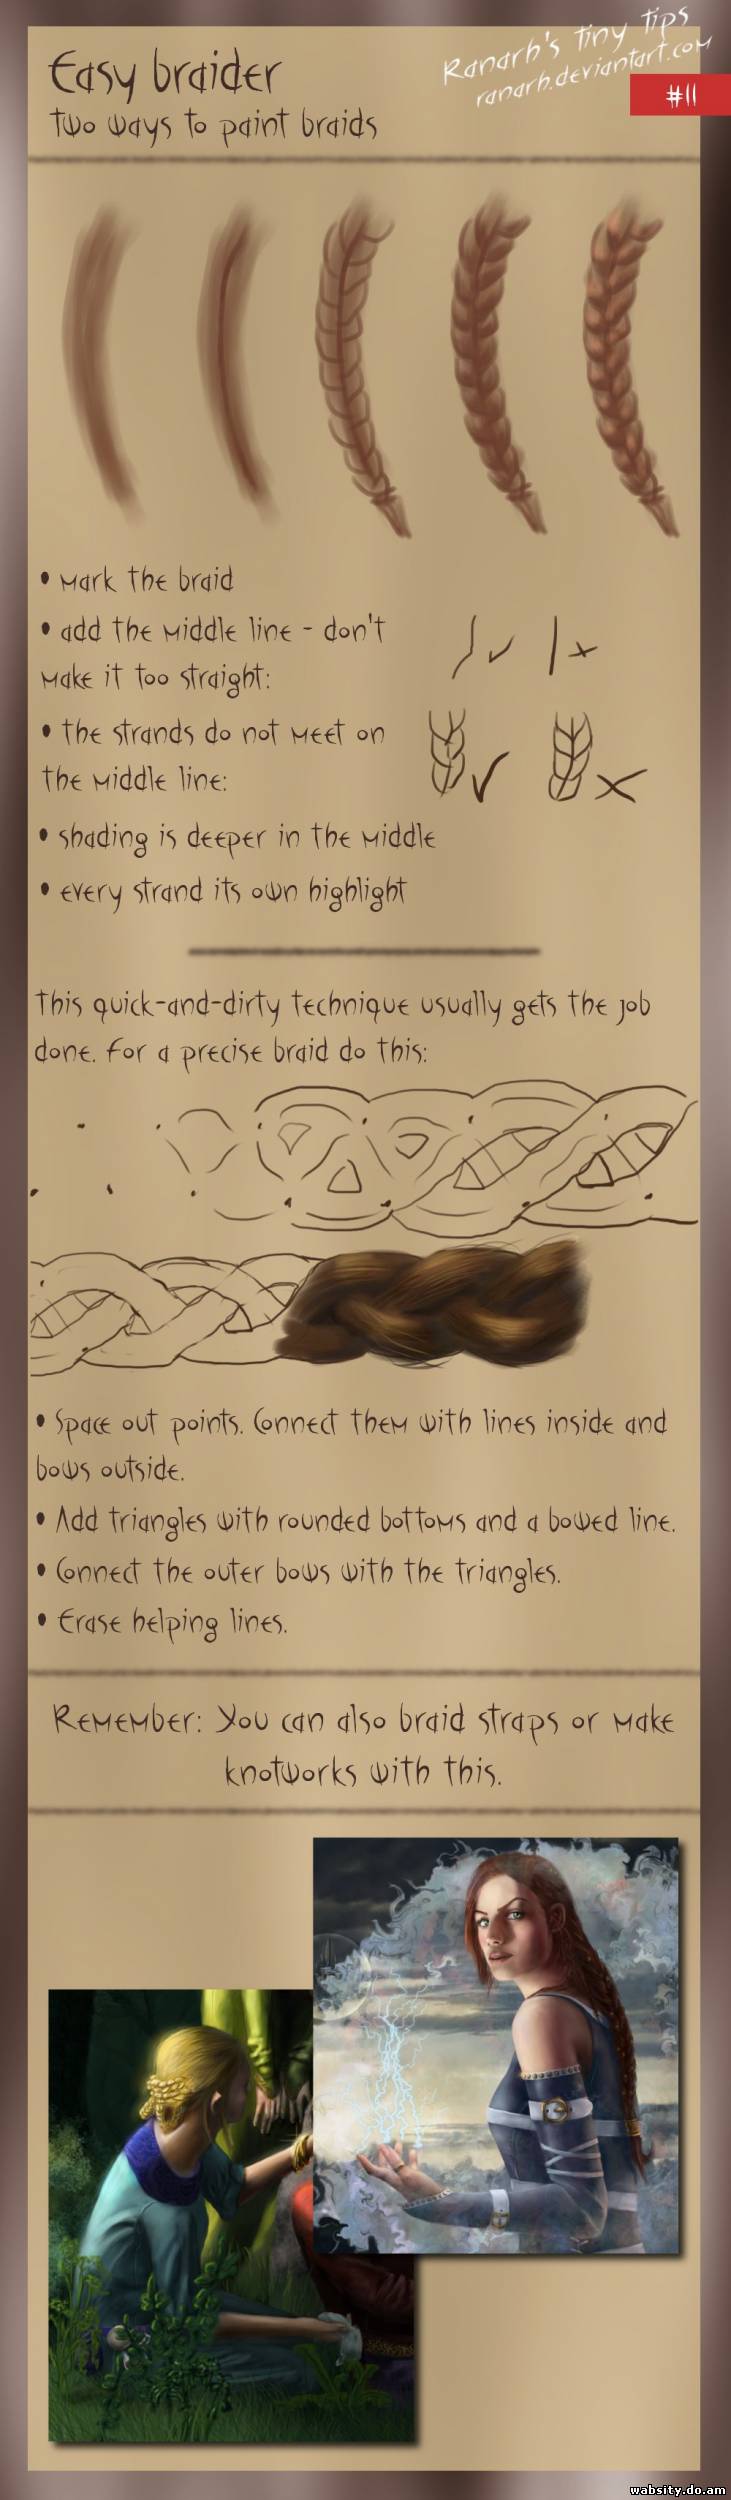 Easy braider
two ways to paint braids
Ranarh's tiny tips
ranarh.deviantart.com
#11
• mark the braid
• add the middle line - don't
make it too straight:
• the strands do not meet on
the middle line:
• shading is deeper in the middle
• every strand its own highlight
This quick-and-dirty technique usually gets the job
done. For a precise braid do this:
• Space out points. Connect them with lines inside and
bows outside.
• Add triangles with rounded bottoms and a bowed line.
• Connect the outer bows with the triangles.
• Erase helping lines.
Remember: You can also braid straps or make
knotworks with this.
wabsity.do.am